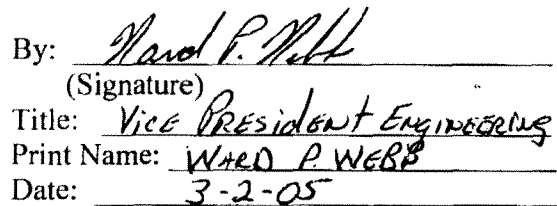 By: Ward P. Webb
(Signature)
Title: Vice President Engineering
Print Name: WARD P. WEBB
Date: 3-2-05